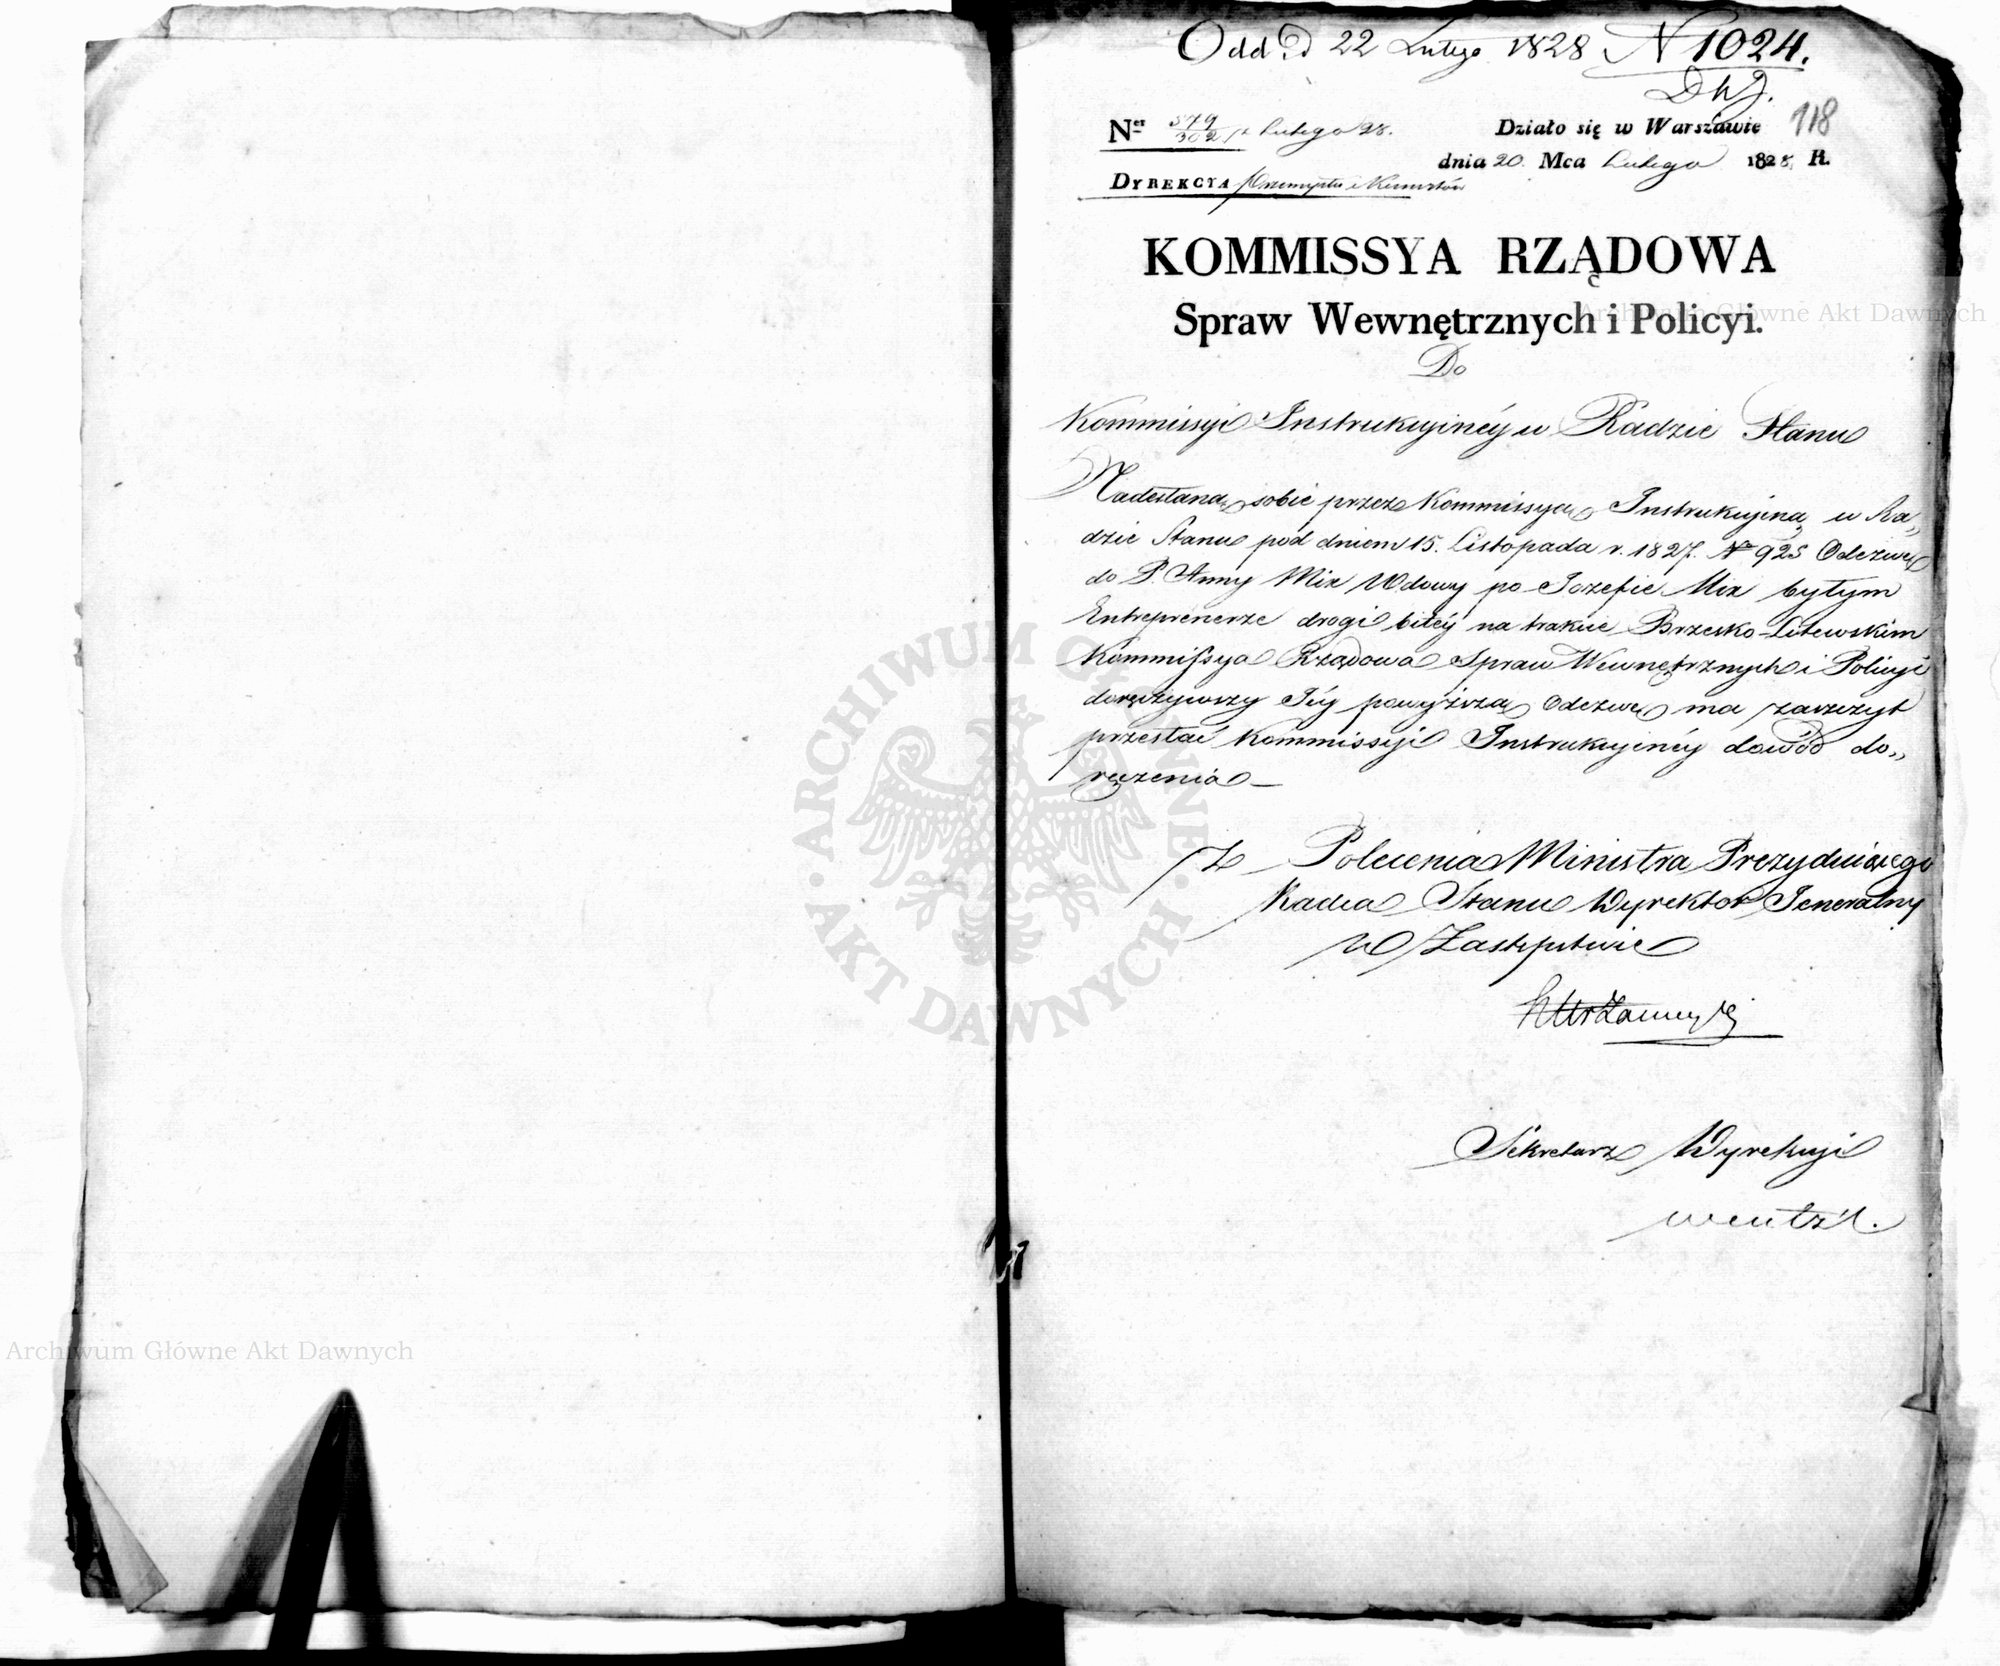 Odd. d 22 Lutego 1828 N 1024.
118
Ner 579/302 Lutego 28.
Działo się w Warszawie
dnia 20. Mca Lutego 1828. R.
DYREKCYA Przemysłu i Kunsztów
KOMMISSYA RZĄDOWA
Spraw Wewnętrznych i Policyi.
Do
Kommissyi Instrukcyinéy w Radzie Stanu
Nadesłaną sobie przez Kommissyą Instrukcyiną w Ra„
dzie Stanu pod dniem 15. Listopada r. 1827. N 925 Odezwę
do P. Anny Mix Wdowy po Jozefie Mix byłym
Entreprenerze drogi bitéy na trakcie Brzesko-Litewskim
Kommissya Rządowa Spraw Wewnętrznych i Policyi
doręczywszy Jéy powyższą Odezwę ma zaszczyt
przesłać Kommissyi Instrukcyinéy dowód do„
ręczenia
Z Polecenia Ministra Prezyduiącego
Radca Stanu Dyrektor Jeneralny
w Zastępstwie
Sekretarz Dyrekcyi
Archiwum Główne Akt Dawnych
ARCHIWUM GŁÓWNE AKT DAWNYCH
Archiwum Główne Akt Dawnych